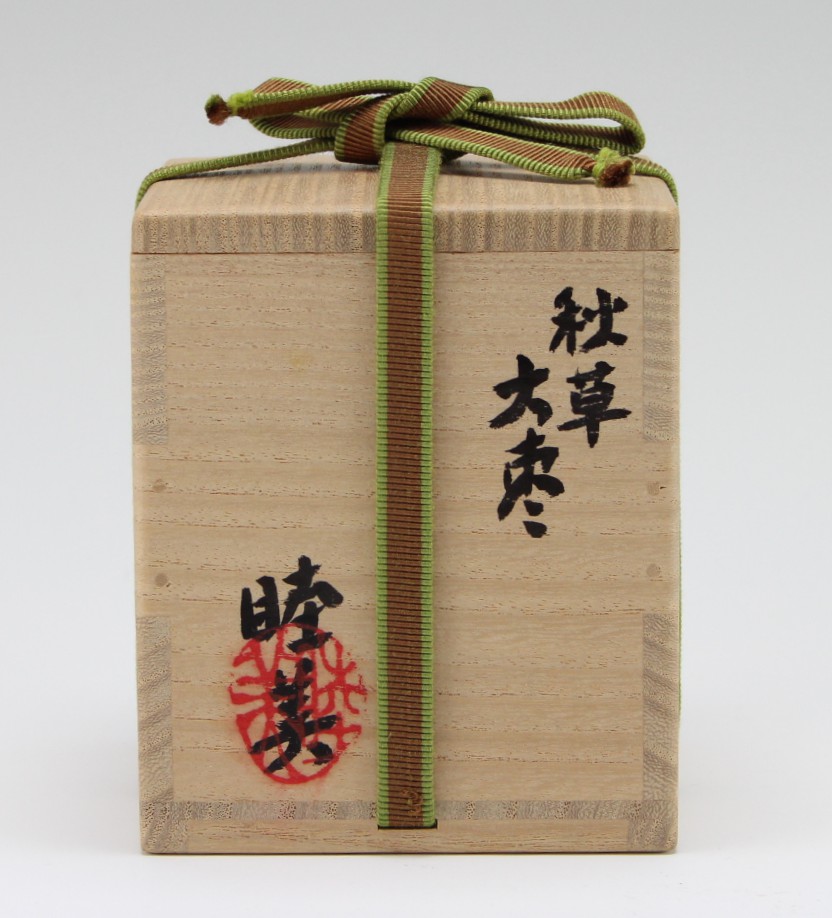 秋草
大棗
睦美